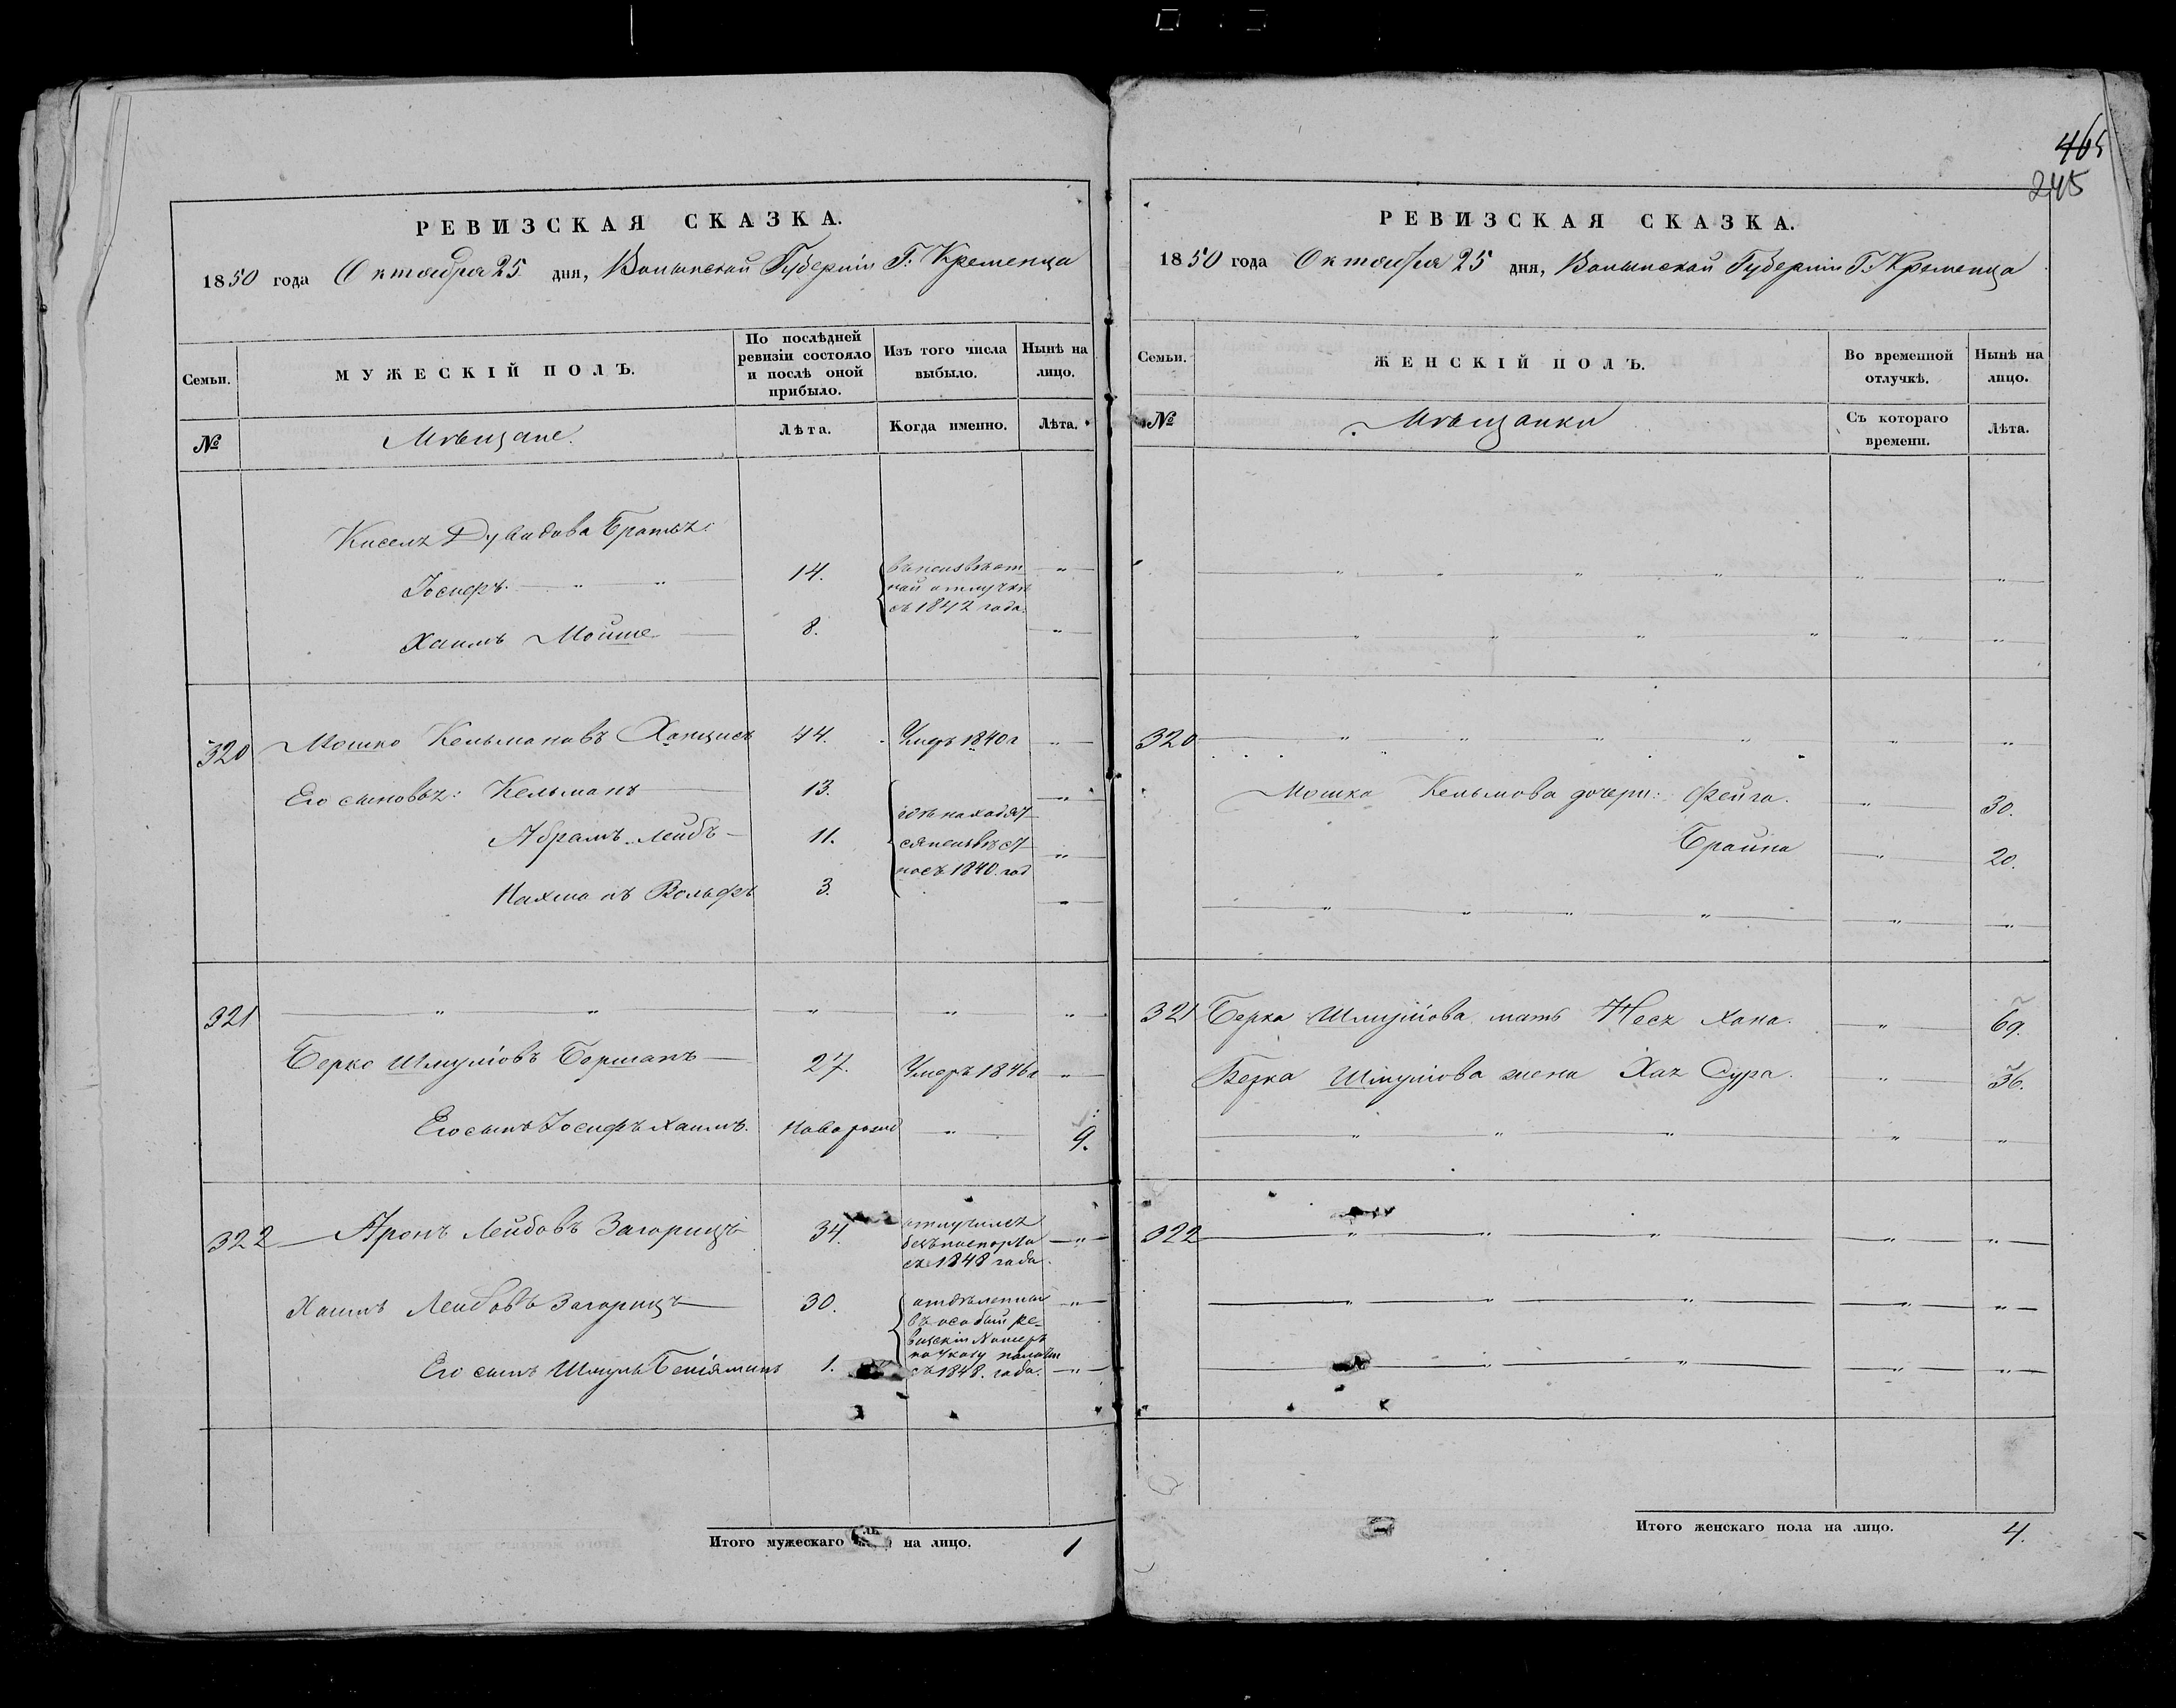 465
245
РЕВИЗСКАЯ СКАЗКА.
1850 года Октября 25 дня, Волынской Губерніи Г. Кременца
Семьи.
МУЖЕСКІЙ ПОЛЪ.
По послѣдней ревизіи состояло и послѣ оной прибыло.
Изъ того числа выбыло.
Нынѣ на лицо.
№
Мѣщане.
Лѣта.
Когда именно.
Лѣта.
Киселъ Дувидова Братья:
Іосифъ 14.
въ неизвѣст
ной отлучкѣ
съ 1842 года.
Хаимъ Мойше 8.
320 Мошко Кельмановъ 44. Умеръ 1840 г
Его сыновья: Кельманъ 13.
Абрамъ Лейбъ 11.
гдѣ находят
ся неизвѣст
но съ 1840. год
Нахманъ Вольфъ 3.
321
Берко Шмулiовъ Борманъ 27. Умеръ 1846 г
Его сынъ Іосифъ Хаимъ. Новорожд 9.
322 Аронъ Лейбовъ Загорицъ 34.
отлучился
безъ паспорта
съ 1848 года.
Хаимъ Лейбовъ Загорицъ 30.
отдѣленны
въ особый ре-
визскій Номеръ
по Указу палаты
съ 1848. года.
Его сынъ Шмуль Беніяминъ 1.
Итого мужескаго на лицо. 1
РЕВИЗСКАЯ СКАЗКА.
1850 года Октября 25 дня, Волынской Губерніи Г. Кременца
Семьи.
ЖЕНСКІЙ ПОЛЪ.
Во временной отлучкѣ.
Нынѣ на лицо.
№
Мѣщанки
Съ котораго времени.
Лѣта.
320
Мошка Кельмова дочери: Фейга. 30.
Брайна 20.
321 Берка Шмулiова мать Несъ Хана. 69.
Берка Шмулiова жена Хаъ Сура. 36.
322
Итого женскаго пола на лицо. 4.